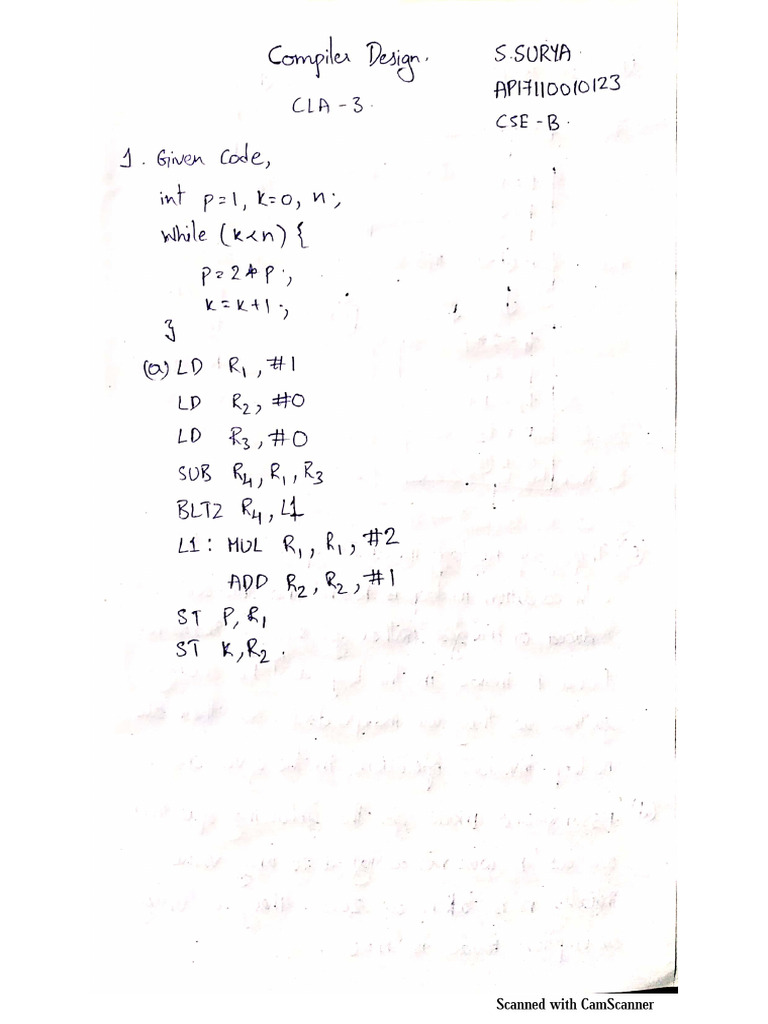 Compiler Design.
S.SURYA
CLA-3.
AP17110010123
CSE-B.
1. Given Code,
int p=1, k=0, n;
while (k<n) {
p=2*p;
k=k+1;
}
(a) LD R1, #1
LD R2, #0
LD R3, #0
SUB R4, R1, R3
BLTZ R4, L1
L1: MUL R1, R1, #2
ADD R2, R2, #1
ST P, R1
ST K, R2.
Scanned with CamScanner